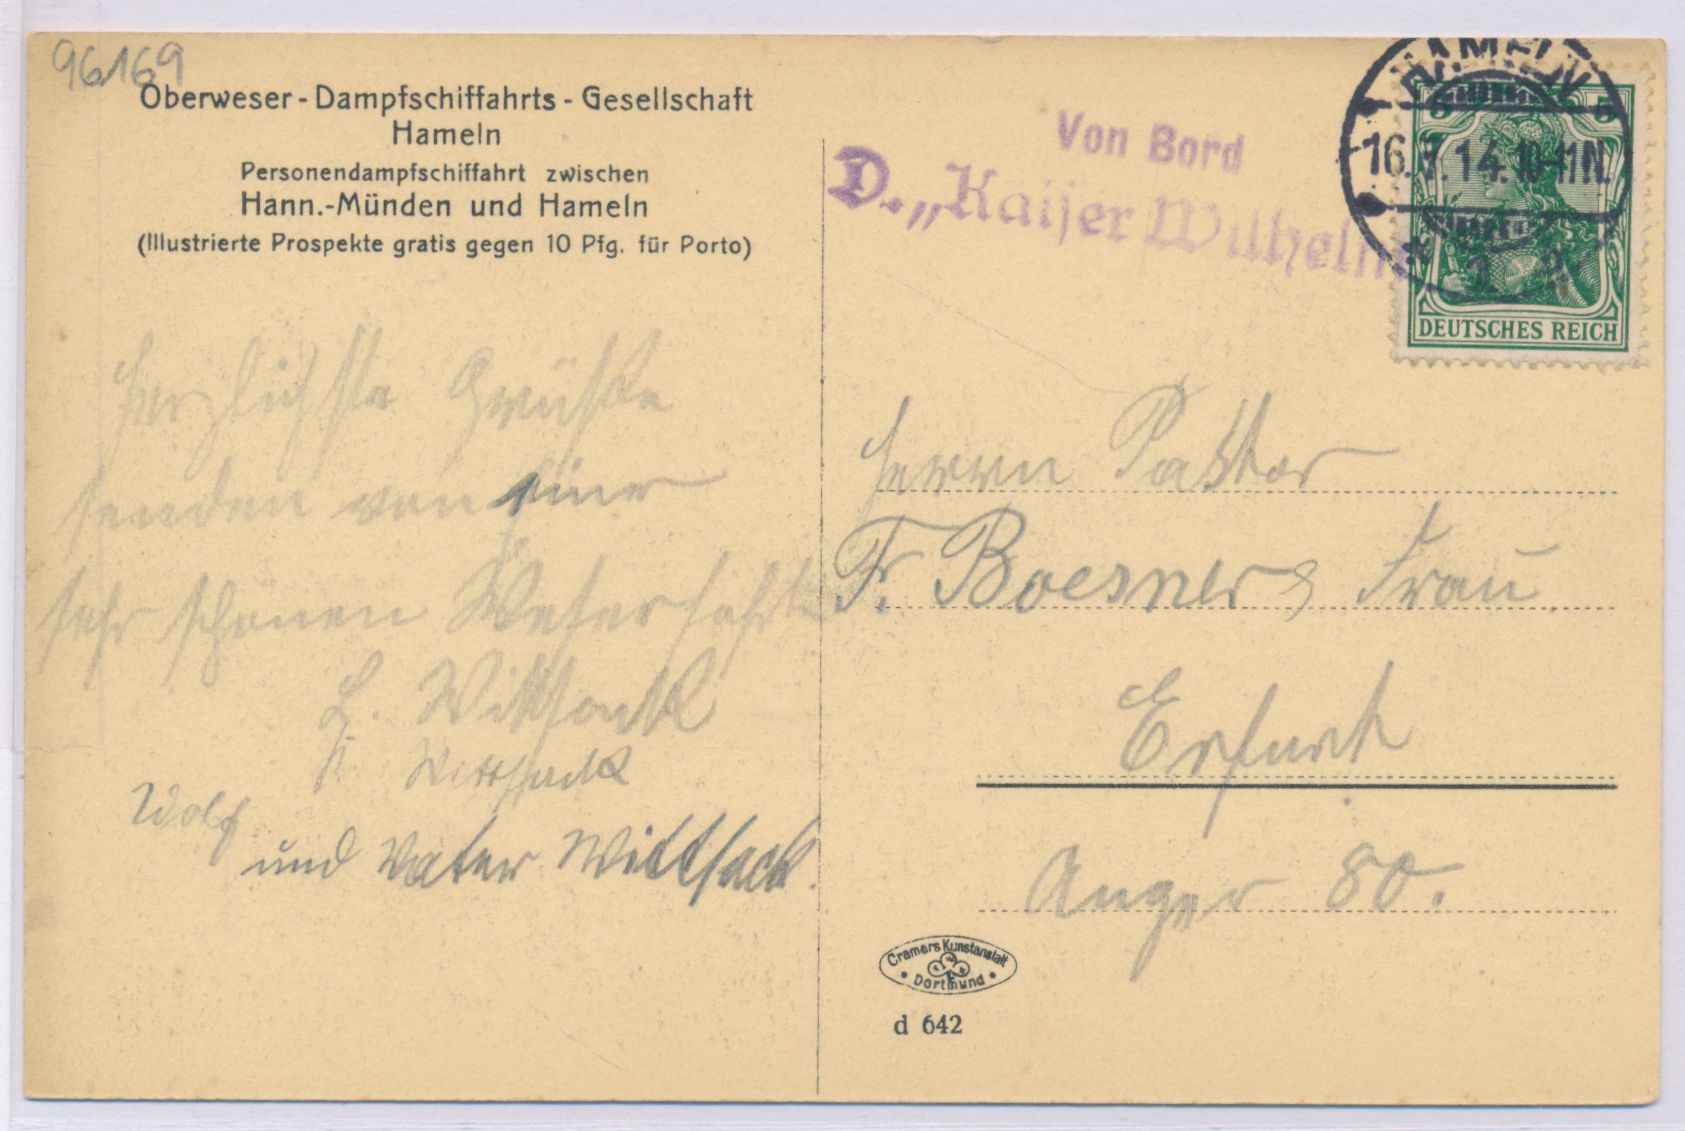 96169
Oberweser-Dampfschiffahrts-Gesellschaft
Hameln
Personendampfschiffahrt zwischen
Hann.-Münden und Hameln
(Illustrierte Prospekte gratis gegen 10 Pfg. für Porto)
Von Bord
D. „Kaiser Wilhelm
HAMELN
16. 7. 14. 10-11 N.
* 1
5 5
DEUTSCHES REICH
Herzlichste Grüße
senden von einer
sehr schönen Weserfahrt
Wittsack
Wittsack
Wolf
und Vater Wittsack.
Herrn Pastor
Fr. Boesner & Frau
Erfurt
Anger 80.
Cramers Kunstanstalt
Dortmund
d 642